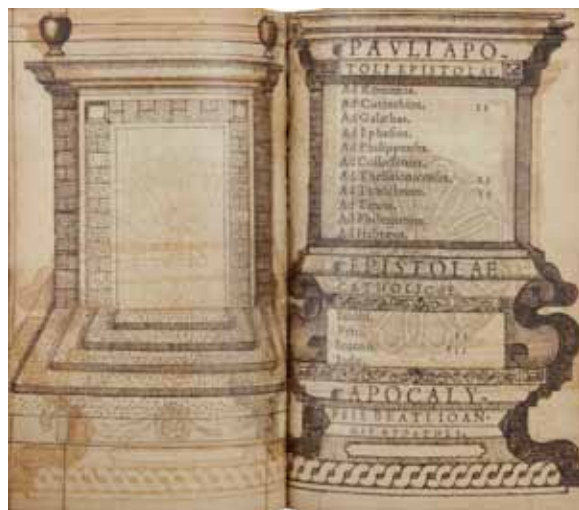 PAVLI APO-
TOLI EPISTOLAE.
Ad Romanos.
Ad Corinthios.
Ad Galathas.
Ad Ephesios.
Ad Philippenses.
Ad Collossenses.
Ad Thessalonicenses.
Ad Timotheum.
Ad Titum.
Ad Philemonem.
Ad Hebræos.
EPISTOLAE
CATHOLICAE
Petri.
Ioannis.
Iudæ.
APOCALY-
PSIS BEATI IOAN-
NIS APOSTOLI.